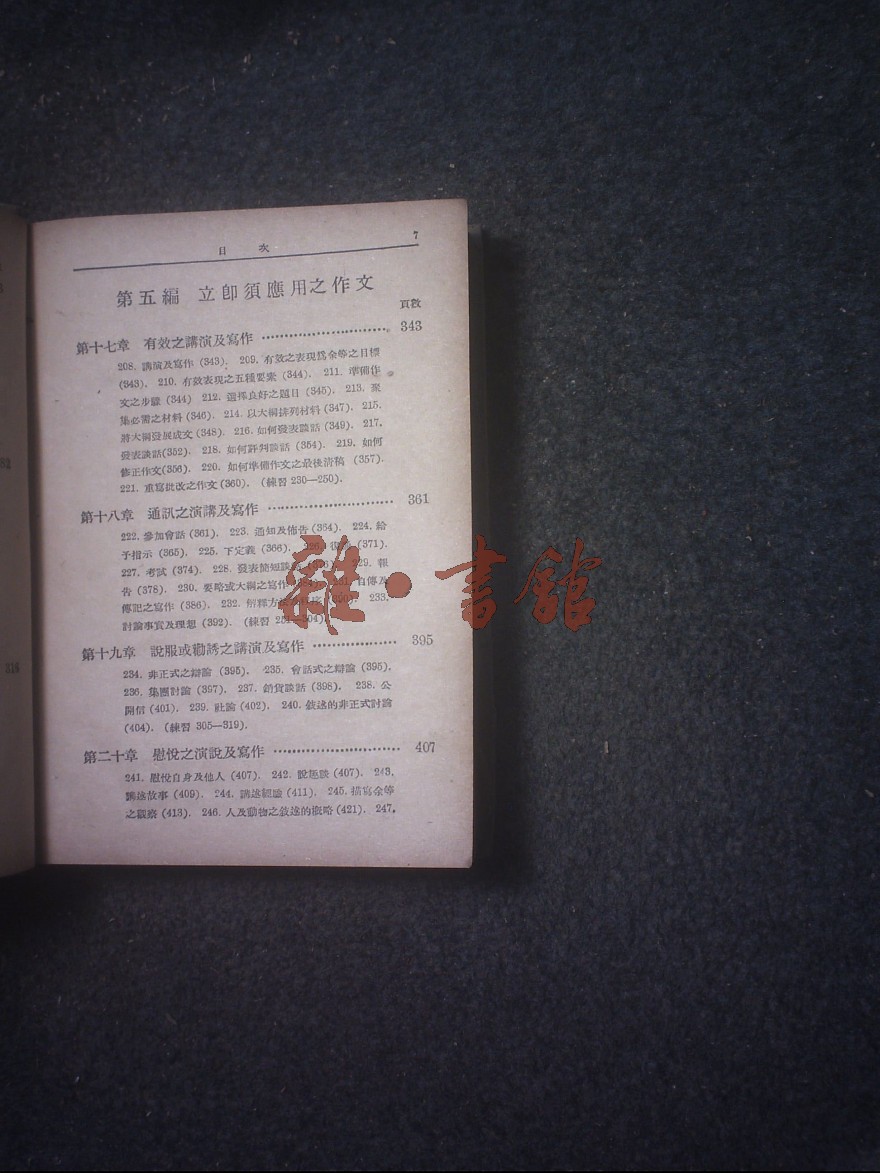 目 次 7
第五編 立卽須應用之作文
頁數
第十七章 有效之講演及寫作 ………………………… 343
208. 講演及寫作 (343). 209. 有效之表現爲余等之目標
(343). 210. 有效表現之五種要素 (344). 211. 準備作
文之步驟 (344) 212. 選擇良好之題目 (345). 213. 聚
集必需之材料 (346). 214. 以大綱排列材料 (347). 215.
將大綱發展成文 (348). 216. 如何發表談話 (349). 217.
發表談話(352). 218. 如何評判談話 (354). 219. 如何
修正作文(356). 220. 如何準備作文之最後清稿 (357).
221. 重寫批改之作文 (360). (練習 230—250).
第十八章 通訊之演講及寫作 ………………………… 361
222. 參加會話 (361). 223. 通知及佈告 (364). 224. 給
予指示 (365). 225. 下定義 (366). 226. (371).
227. 考試 (374) 228. 發表簡短談 229. 報
告 (378). 230. 要略或大綱之寫作 231. 自傳及
傳記之寫作 (386). 232. 解釋方 233.
討論事實及理想 (392). (練習 251—304)
第十九章 說服或勸誘之講演及寫作 ……………… 395
234. 非正式之辯論 (395). 235. 會話式之辯論 (395).
236. 集團討論 (397). 237. 銷貨談話 (398). 238. 公
開信 (401). 239. 社論 (402). 240. 敍述的非正式討論
(404). (練習 305—319).
第二十章 慰悅之演說及寫作 ………………………… 407
241. 慰悅自身及他人 (407). 242. 說趣談 (407). 243.
講述故事 (409). 244. 講述經驗 (411). 245. 描寫余等
之觀察 (413). 246. 人及動物之敍述的概略 (421). 247.
雜·書館
316